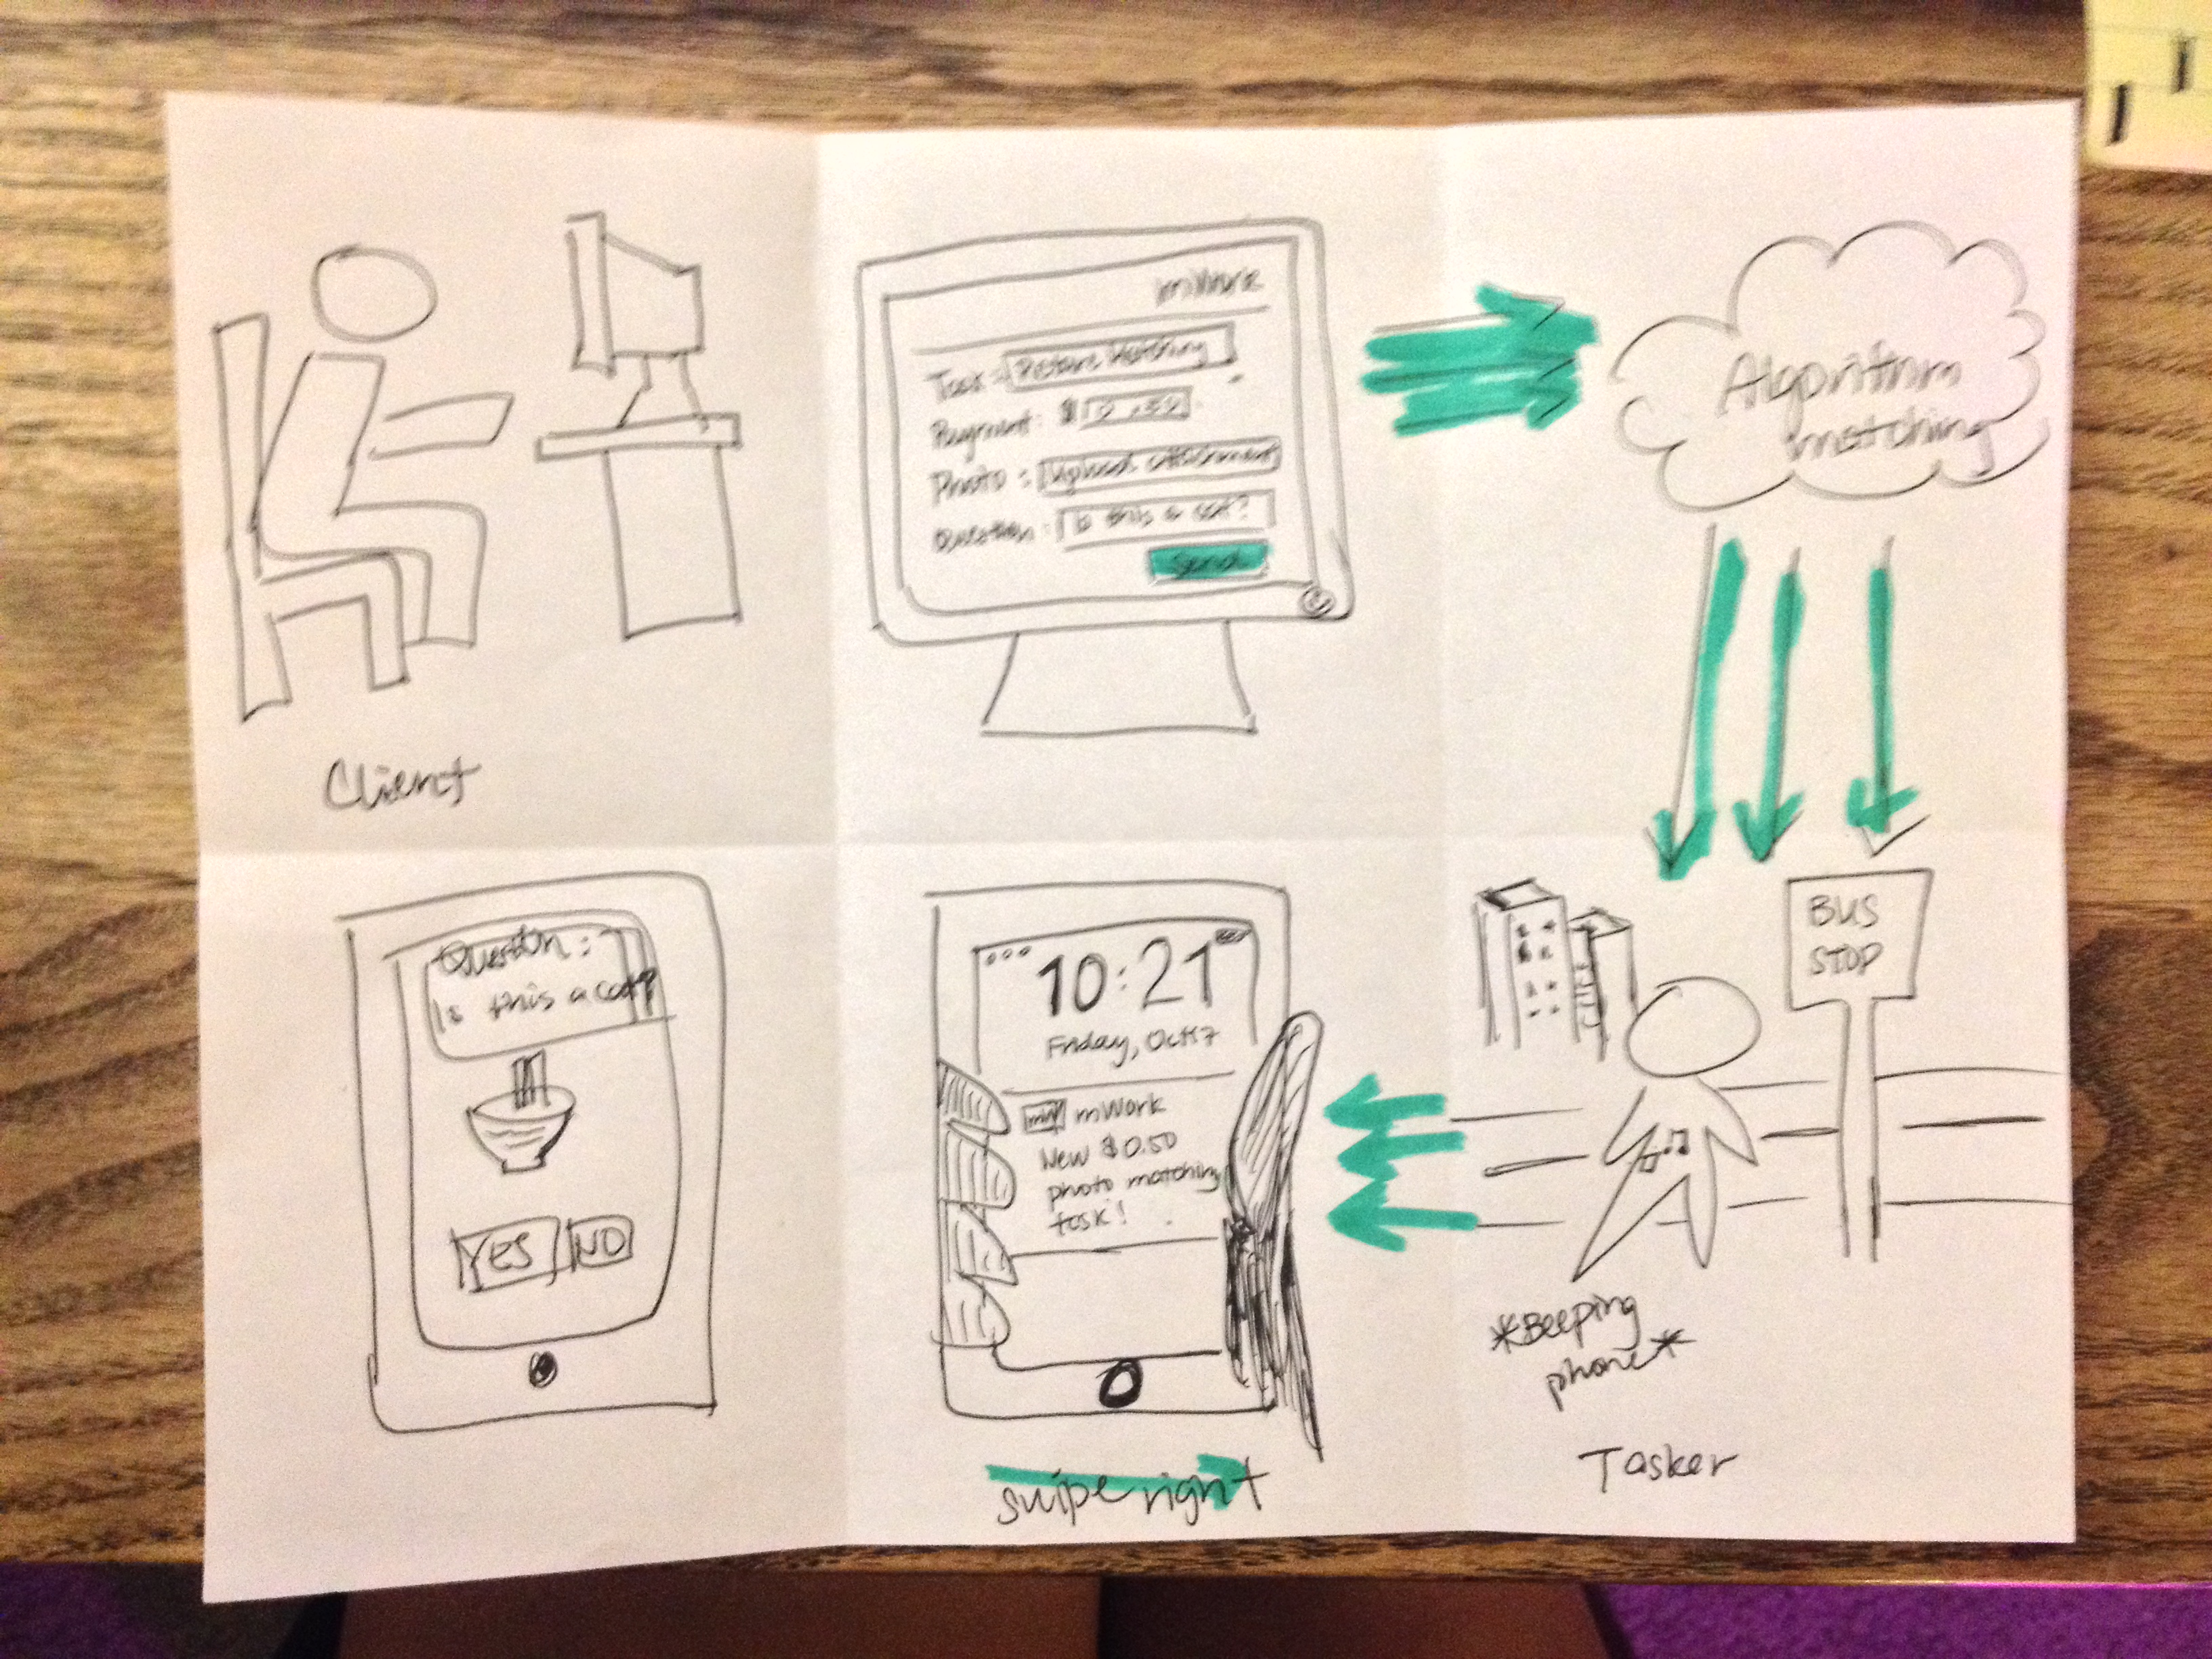 Client
mWork
Task: Picture Matching
Payment: $ 0.50
Photo: Upload attachment
Question: Is this a cat?
Send
Algorithm
matching
BUS
STOP
*Beeping
phone*
Tasker
10:21
Friday, Oct 17
mW mWork
New $0.50
photo matching
task!
swipe right
Question:
Is this a cat?
YES NO